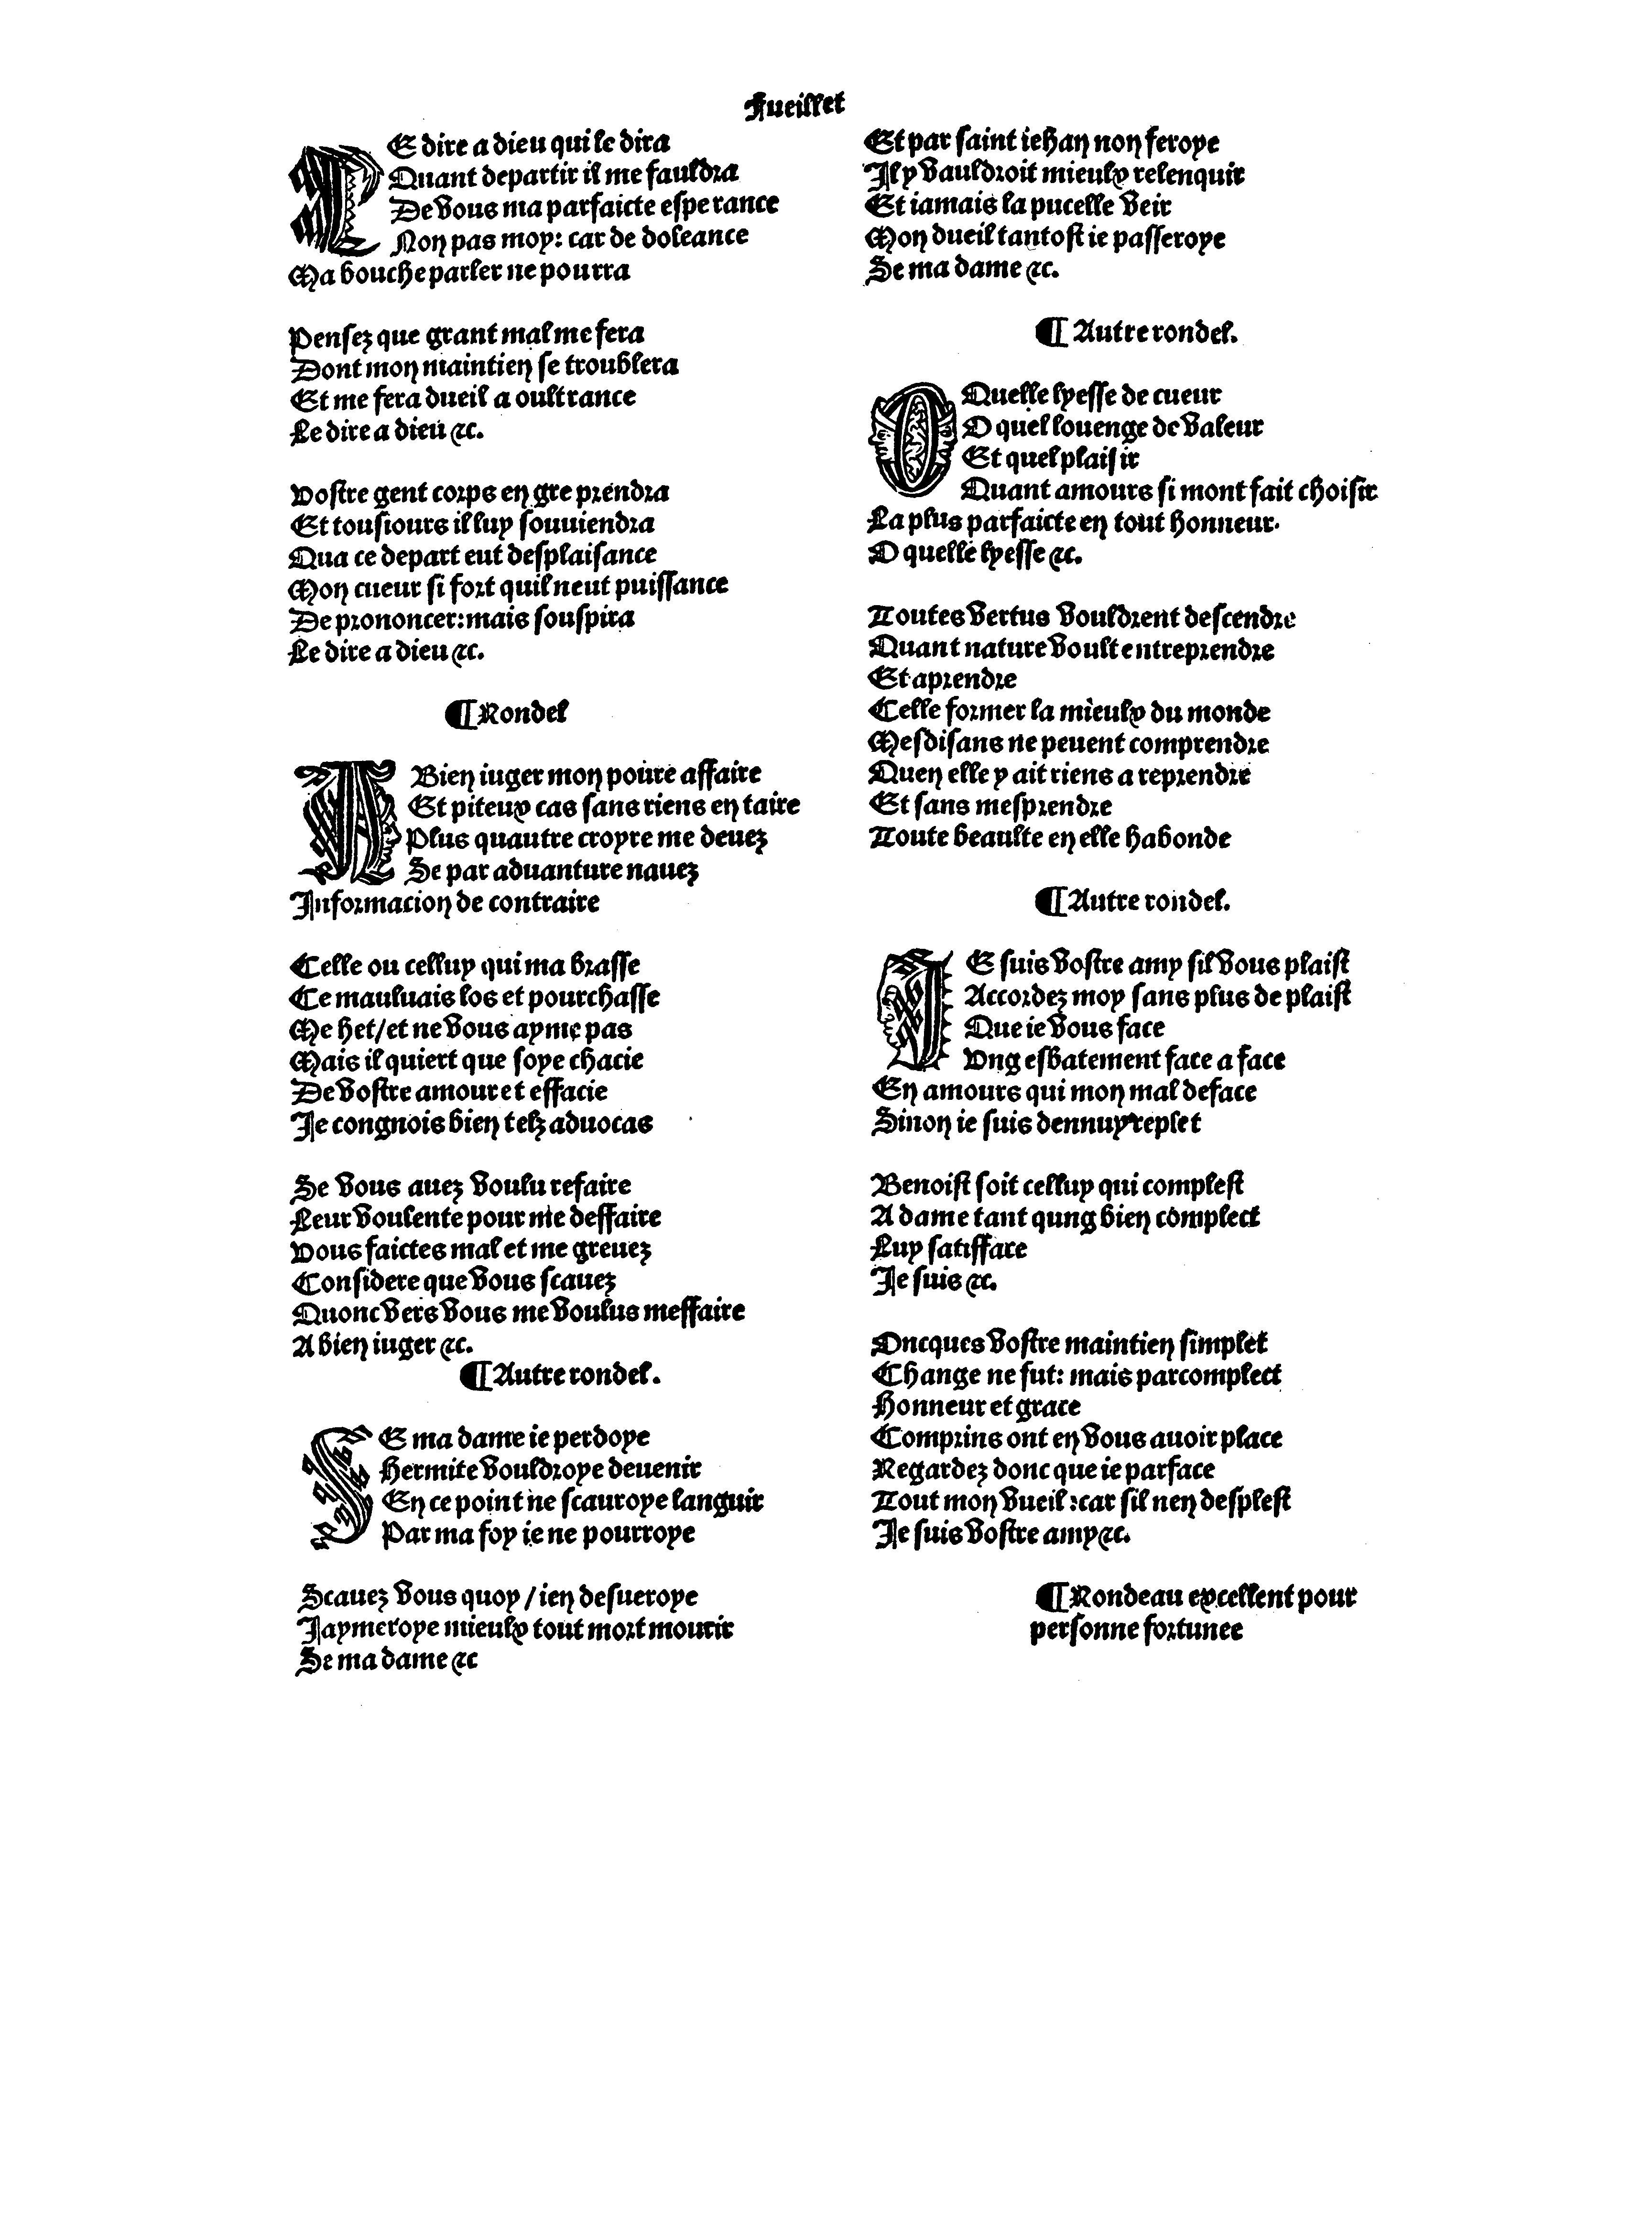 Fueillet
LE dire a dieu qui le dira
Quant departir il me fauldra
De vous ma parfaicte esperance
Non pas moy: car de doleance
Ma bouche parler ne pourra
Pensez que grant mal me fera
Dont mon maintien se troublera
Et me fera dueil a oultrance
Le dire a dieu &c.
Vostre gent corps en gre prendra
Et tousiours il luy souuiendra
Qua ce depart eut desplaisance
Mon cueur si fort quil neut puissance
De prononcer: mais souspira
Le dire a dieu &c.
¶ Rondel
A Bien iuger mon poure affaire
Et piteux cas sans riens en taire
Plus quautre croyre me deuez
Se par aduanture nauez
Informacion de contraire
Celle ou celluy qui ma brasse
Ce mauluais los et pourchasse
Me het/et ne vous ayme pas
Mais il quiert que soye chacie
De vostre amour et effacie
Je congnois bien telz aduocas
Se vous auez voulu refaire
Leur voulente pour me deffaire
Vous faictes mal et me greuez
Considere que vous scauez
Quonc vers vous me voulus meffaire
A bien iuger &c.
¶ Autre rondel.
SE ma dame ie perdoye
Hermite vouldroye deuenir
En ce point ne scauroye languir
Par ma foy ie ne pourroye
Scauez vous quoy/ien desueroye
Jaymeroye mieulx tout mort mourir
Se ma dame &c
Et par saint iehan non feroye
Il y vauldroit mieulx relenquir
Et iamais la pucelle veir
Mon dueil tantost ie passeroye
Se ma dame &c.
¶ Autre rondel.
O Quelle lyesse de cueur
O quel louenge de valeur
Et quel plaisir
Quant amours si mont fait choisir
La plus parfaicte en tout honneur.
O quelle lyesse &c.
Toutes vertus vouldrent descendre
Quant nature voult entreprendre
Et aprendre
Celle former la mieulx du monde
Mesdisans ne peuent comprendre
Quen elle y ait riens a reprendre
Et sans mesprendre
Toute beaulte en elle habonde
¶ Autre rondel.
JE suis vostre amy sil vous plaist
Accordez moy sans plus de plaist
Que ie vous face
Vng esbatement face a face
En amours qui mon mal deface
Sinon ie suis dennuy replet
Benoist soit celluy qui complest
A dame tant qung bien complect
Luy satifface
Je suis &c.
Oncques vostre maintien simplet
Change ne fut: mais parcomplect
Honneur et grace
Comprins ont en vous auoir place
Regardez donc que ie parface
Tout mon vueil: car sil nen desplest
Je suis vostre amy &c.
¶ Rondeau excellent pour
personne fortunee